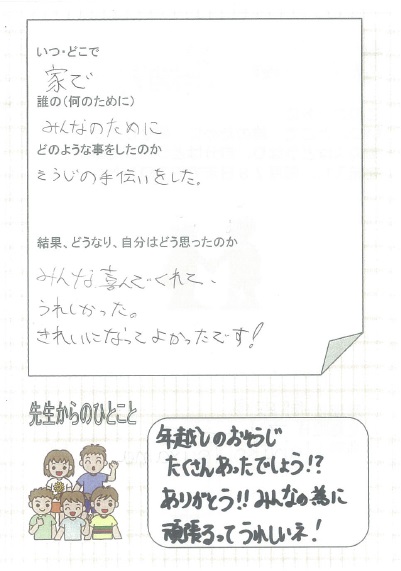 いつ・どこで
家で
誰の(何のために)
みんなのために
どのような事をしたのか
そうじの手伝いをした。
結果、どうなり、自分はどう思ったのか
みんな喜んでくれて、
うれしかった。
きれいになってよかったです!
先生からのひとこと
年越しのおそうじ
たくさんあったでしょう!?
ありがとう!!みんなの為に
頑張るってうれしいネ!